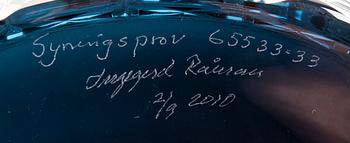 Syningsprov 65533-33
Ingegerd Råman
2/9 2010